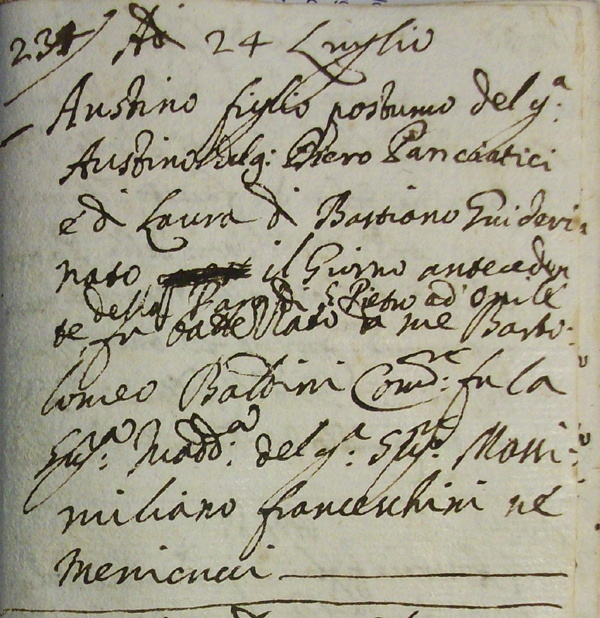 234 Ad 24 Luglio
Austino figlio postumo del q.ª
Austino del q: Piero Panciatici
e di Laura di Bastiano Guideri
nato il Giorno anteceden
della Par. di S. Pietro ad
te fu battezzato da me Barto:
lomeo Baldini Com.re fu la
Sig.ª Madd.ª del q.ª Sig.re Massi:
miliano franceschini ne
Menicucci